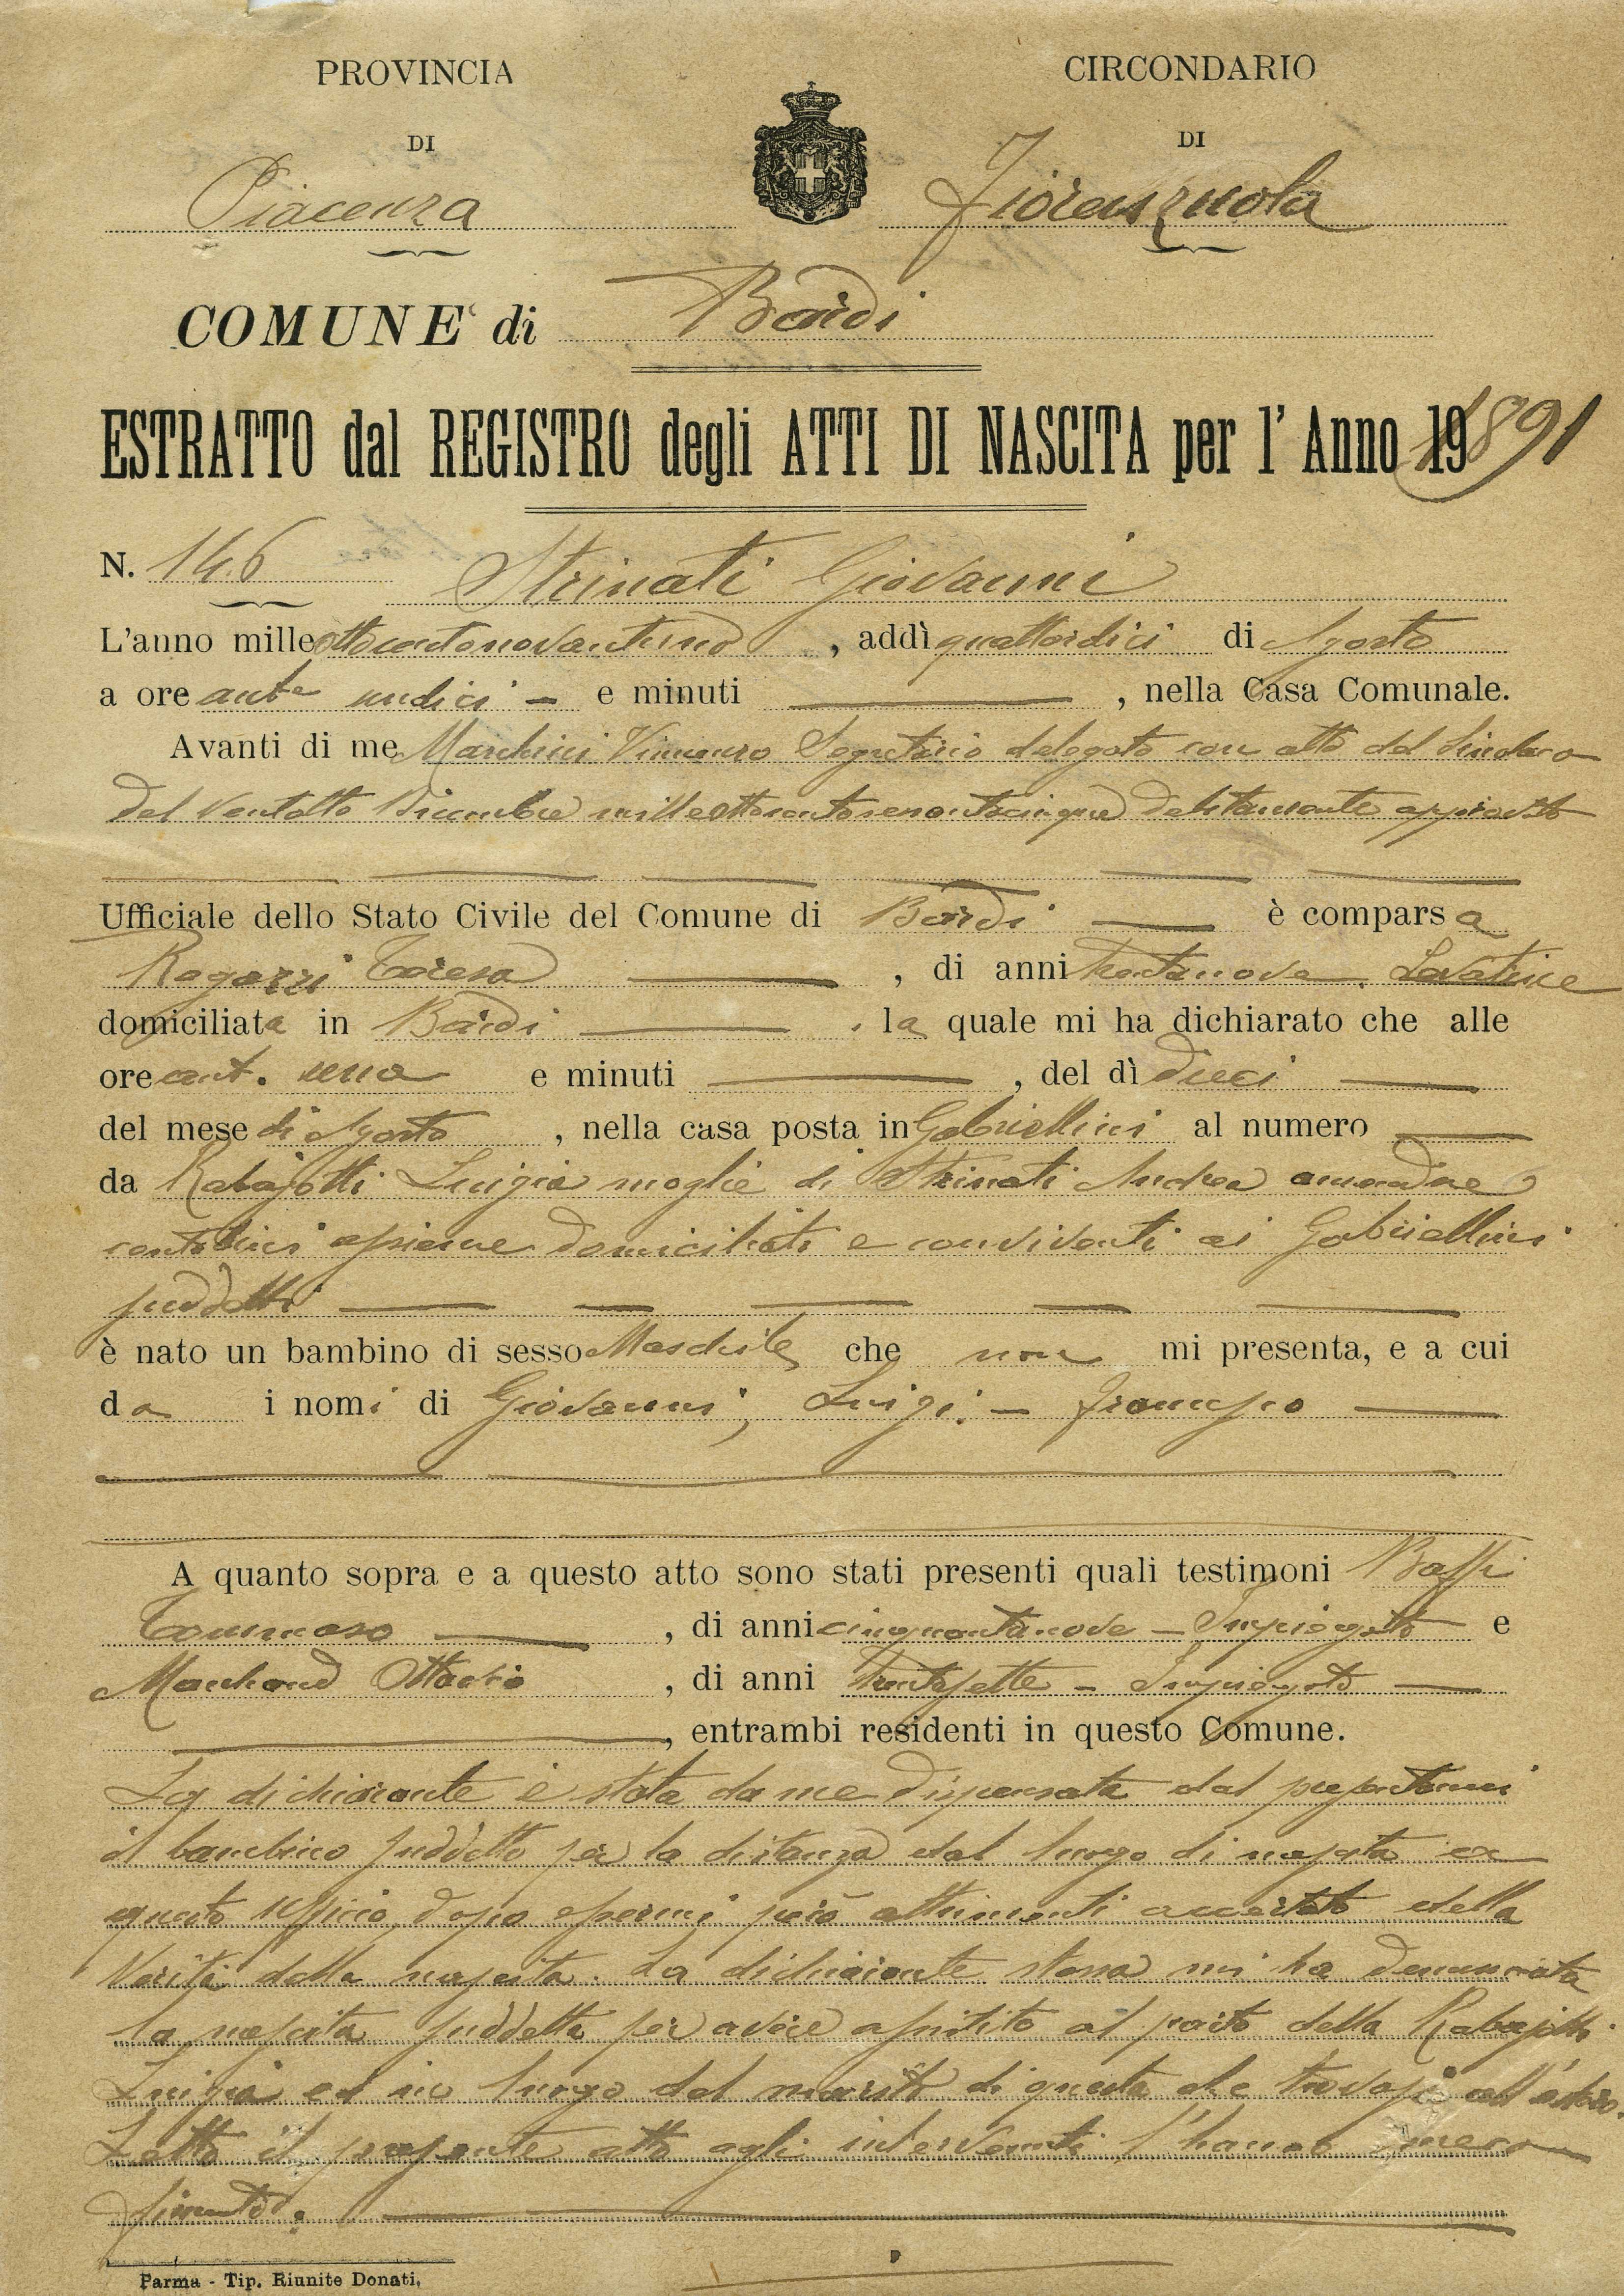 PROVINCIA
CIRCONDARIO
DI
DI
Piacenza
Fiorenzuola
COMUNE di Bardi
ESTRATTO dal REGISTRO degli ATTI DI NASCITA per l' Anno 19 1891
N. 146 Strinati Giovanni
L'anno mille ottocentonovantuno, addì quattordici di Agosto
a ore ante undici - e minuti —, nella Casa Comunale.
Avanti di me Vincenzo Segretario delegato con atto del Sindaco
del ventotto Dicembre debitamente approvato
Ufficiale dello Stato Civile del Comune di Bardi — è comparsa
Ragazzi Teresa —, di anni trentanove, Levatrice
domiciliata in Bardi —, la quale mi ha dichiarato che alle
ore ant. una e minuti —, del dì dieci —
del mese di Agosto, nella casa posta in Gabriellini al numero —
da Rabajotti Luigia moglie di Strinati Andrea amendue
contadini assieme domiciliati e conviventi ai Gabriellini
suddetti — — — — —
è nato un bambino di sesso Maschile che non mi presenta, e a cui
da i nomi di Giovanni, Luigi, - Francesco —
A quanto sopra e a questo atto sono stati presenti quali testimoni
Tommaso —, di anni cinquantanove - Impiegato e
Marchand Ottavio, di anni trentasette - Impiegato —
—, entrambi residenti in questo Comune.
La dichiarante è stata da me dispensata dal presentarmi
il bambino suddetto per la distanza dal luogo di nascita a
questo Ufficio, dopo essermi però altrimenti accertato della
verità della nascita. La dichiarante stessa mi ha denunciata
la nascita suddetta per avere assistito al parto della Rabajotti
Luigia ed in luogo del marito di questa che trovasi all'estero.
Letto il presente atto agli intervenuti l'hanno meco
firmato. —
Parma - Tip. Riunite Donati.